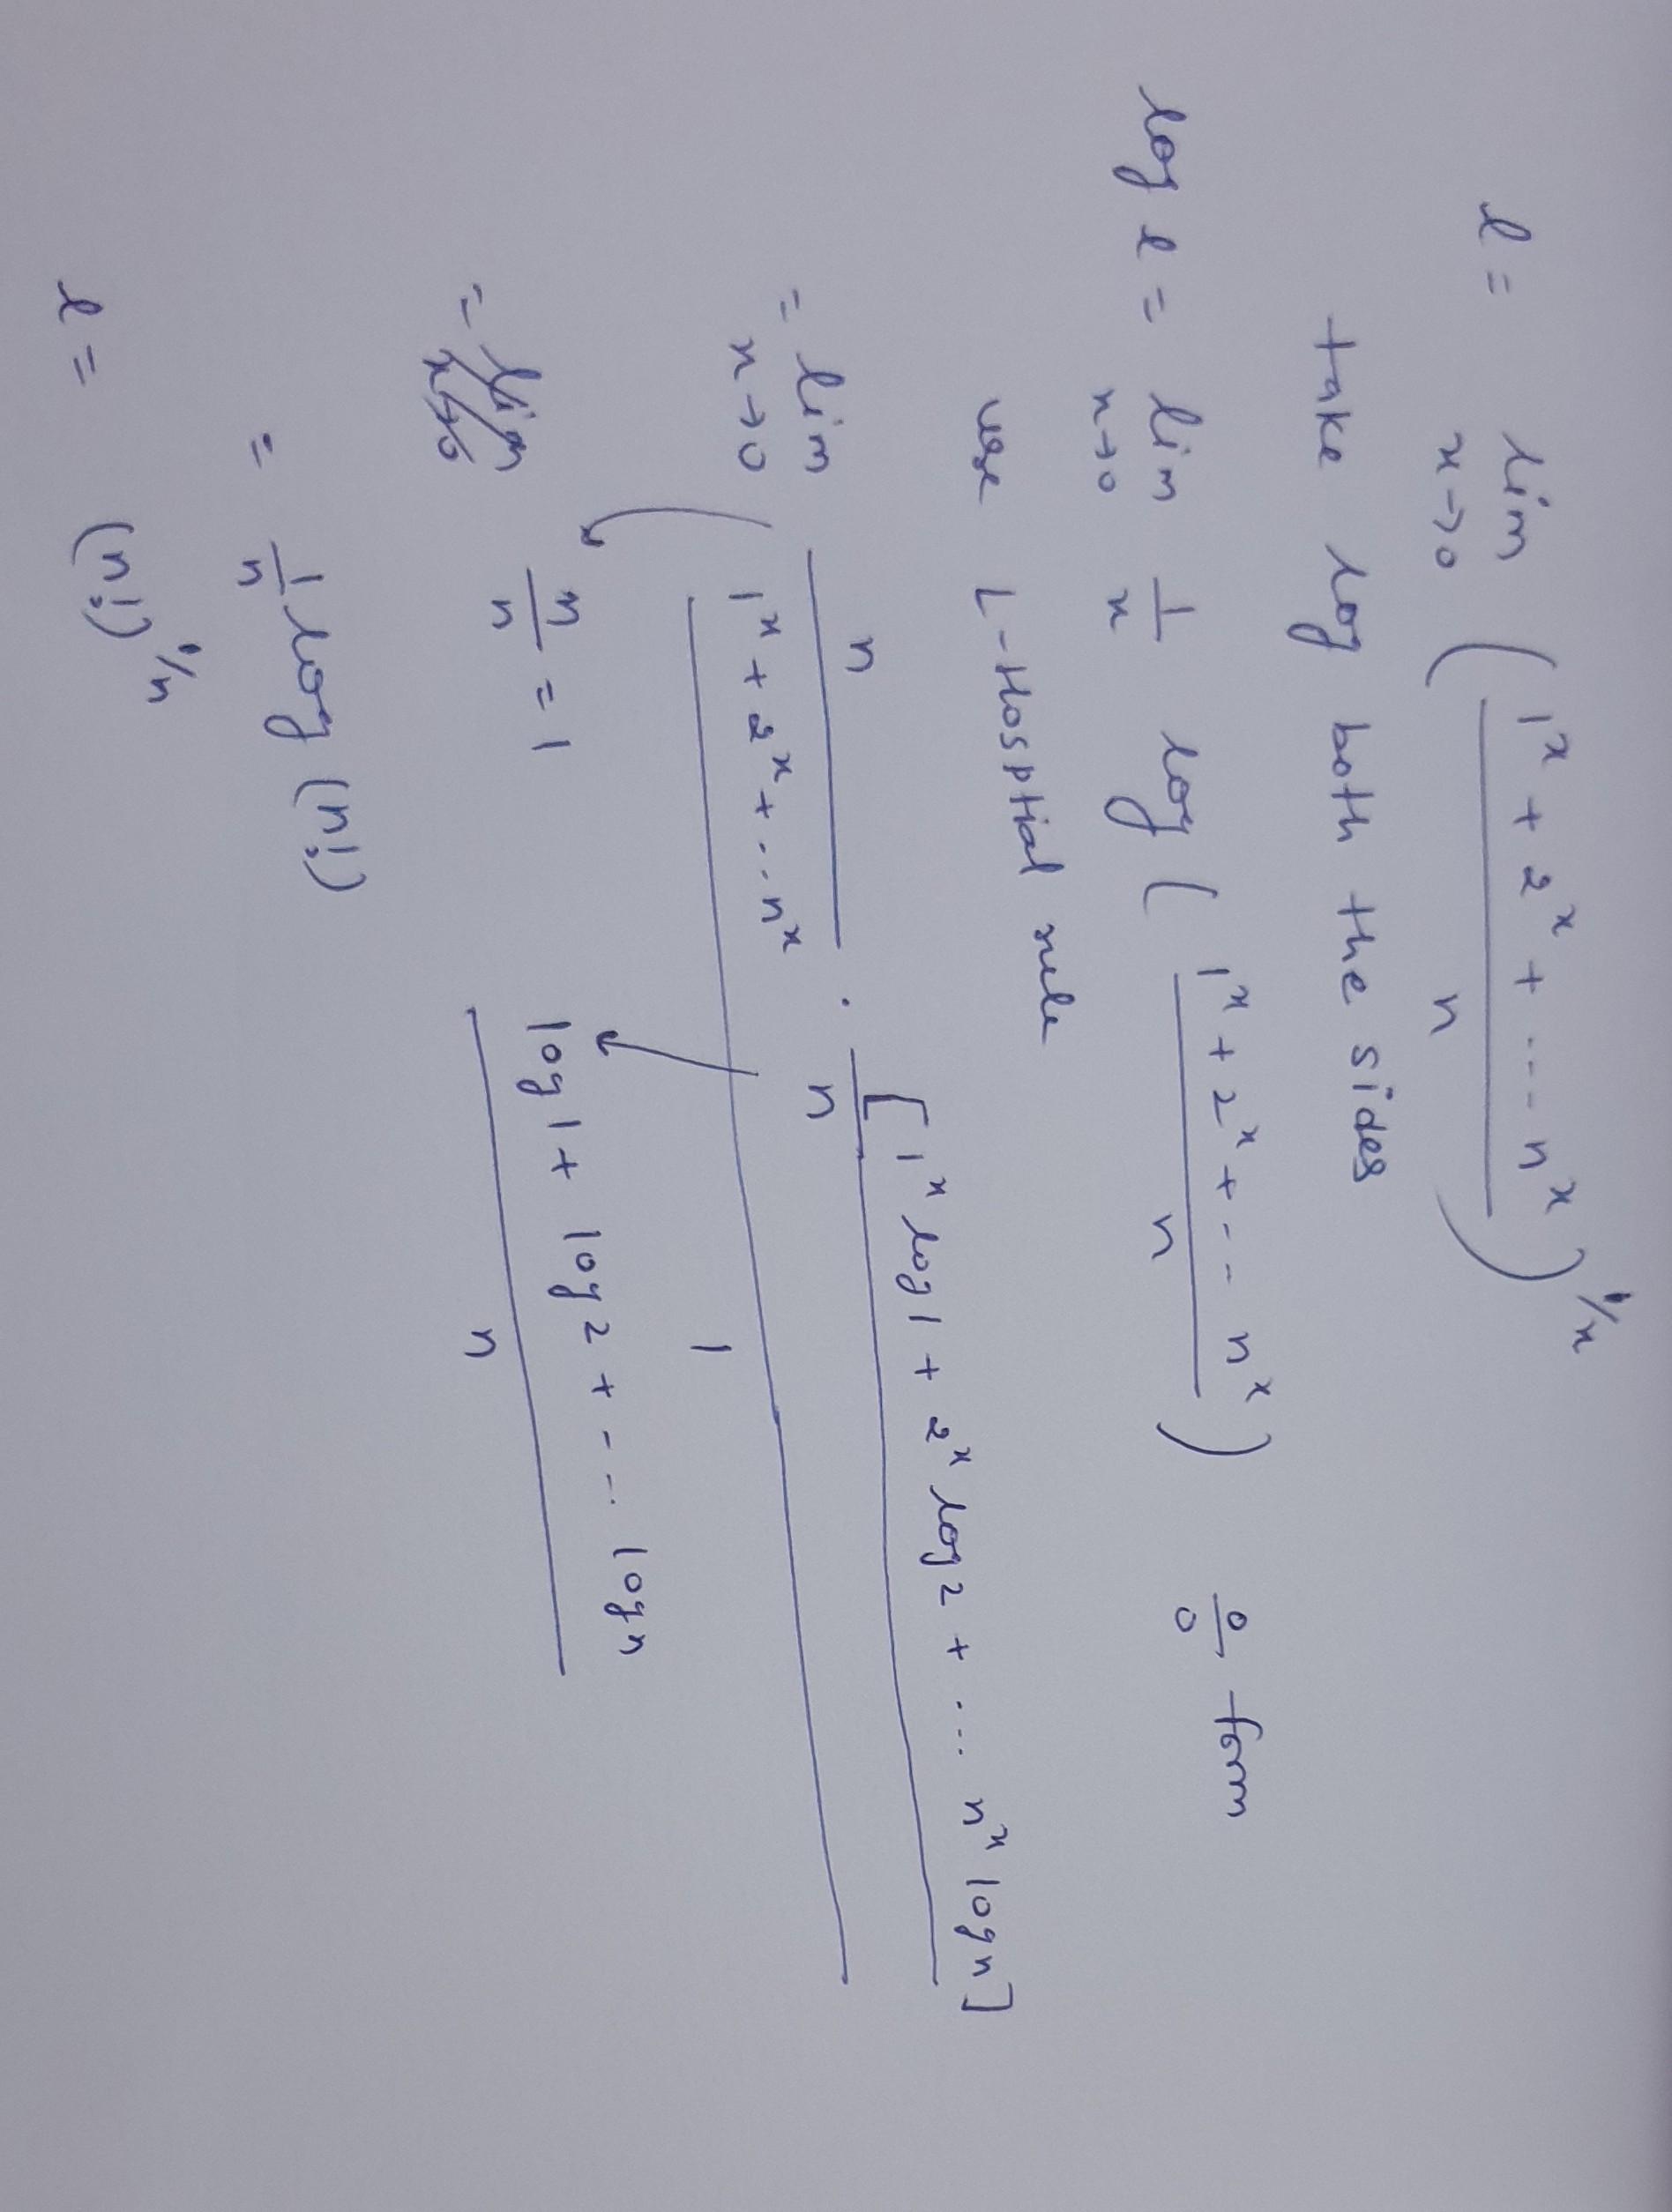 l = lim x→0 ( (1^x + 2^x + ... n^x) / n )^(1/x)
take log both the sides
log l = lim x→0 1/x log ( (1^x + 2^x + ... n^x) / n ) 0/0 form
use L-Hosptial rule
= lim x→0 ( n / (1^x + 2^x + ... n^x) . [1^x log1 + 2^x log2 + ... n^x logn] / n ) / 1
= n/n = 1 (log1 + log2 + ... logn) / n
= 1/n log (n!)
l = (n!)^(1/n)